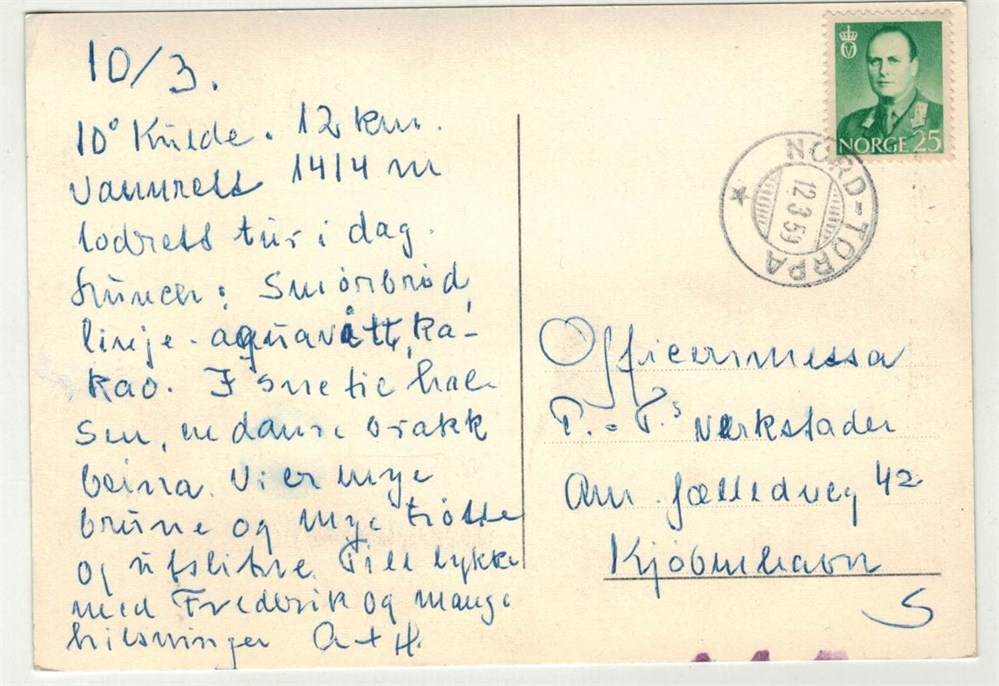 10/3.
10° Kulde. 12 km.
vannrett 1414 m
lodrett tur i dag.
Smörbröd,
linje-aquavitt, ka-
kao. I snetic hal-
sen, ned brakk
beina. Vi er mye
brune og mye trötte
og utslitne. Till lykke
med Frederik og mange
hilsninger A+H.
NORGE 25
NORD-TORPA
12.3.59
Officersmessa
P.-T.s Verkstader
Am. fælledvej 42
Kjöbenhavn
S